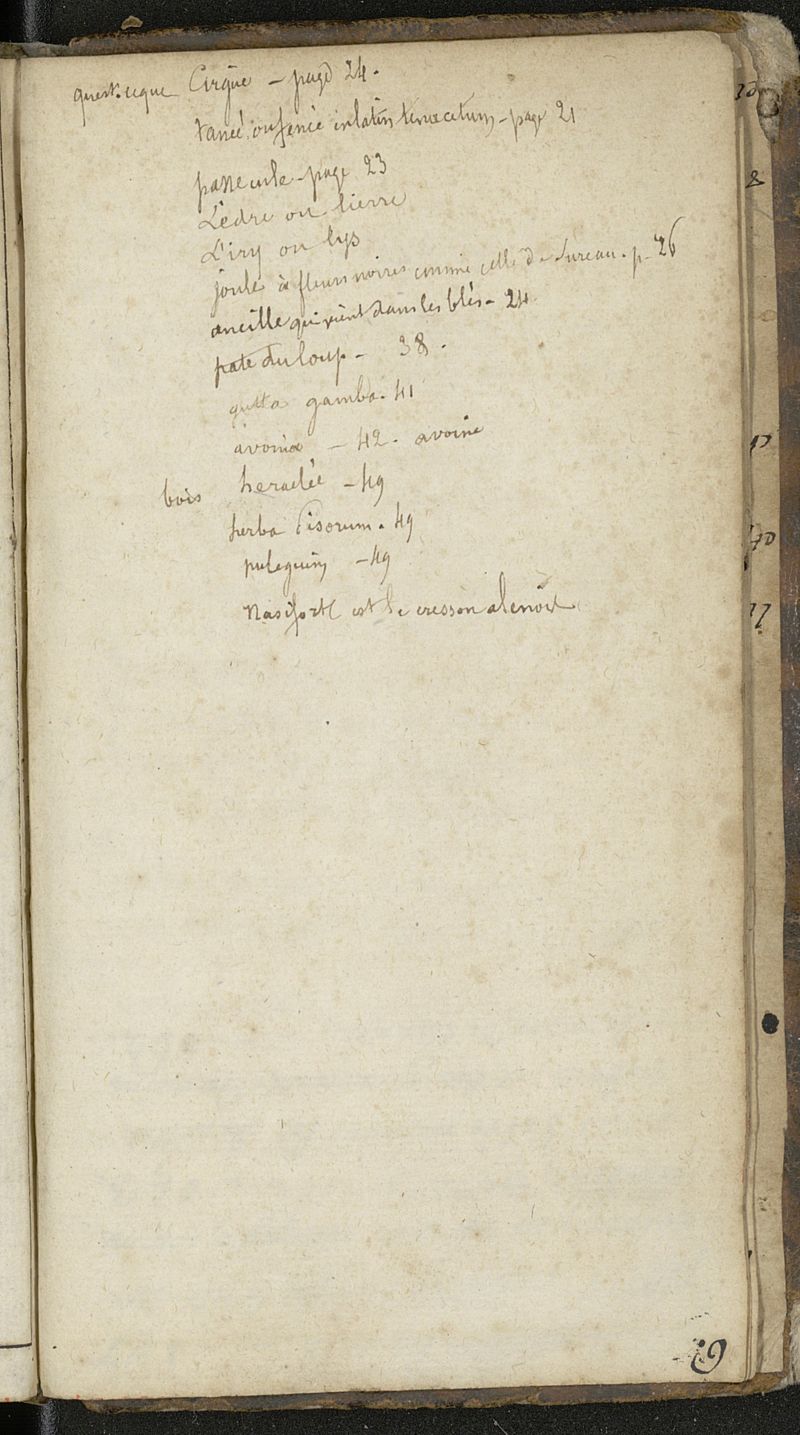 quest-ceque Cirgüe - page 24.
tanée ou senée en latin tenacetum - page 21
passe - page 23
L'edre ou lierre
L'iry ou lys
joule à fleurs noires comme celle de Sureau. p. 26
ancille qui vient dans les blés - 24
pate du loup - 38.
gutta gamba. 41
avoina - 42. avoine
bois heraclée - 49
herba pisorum. 49
puleguin - 49
Nasifort est le cresson alenois